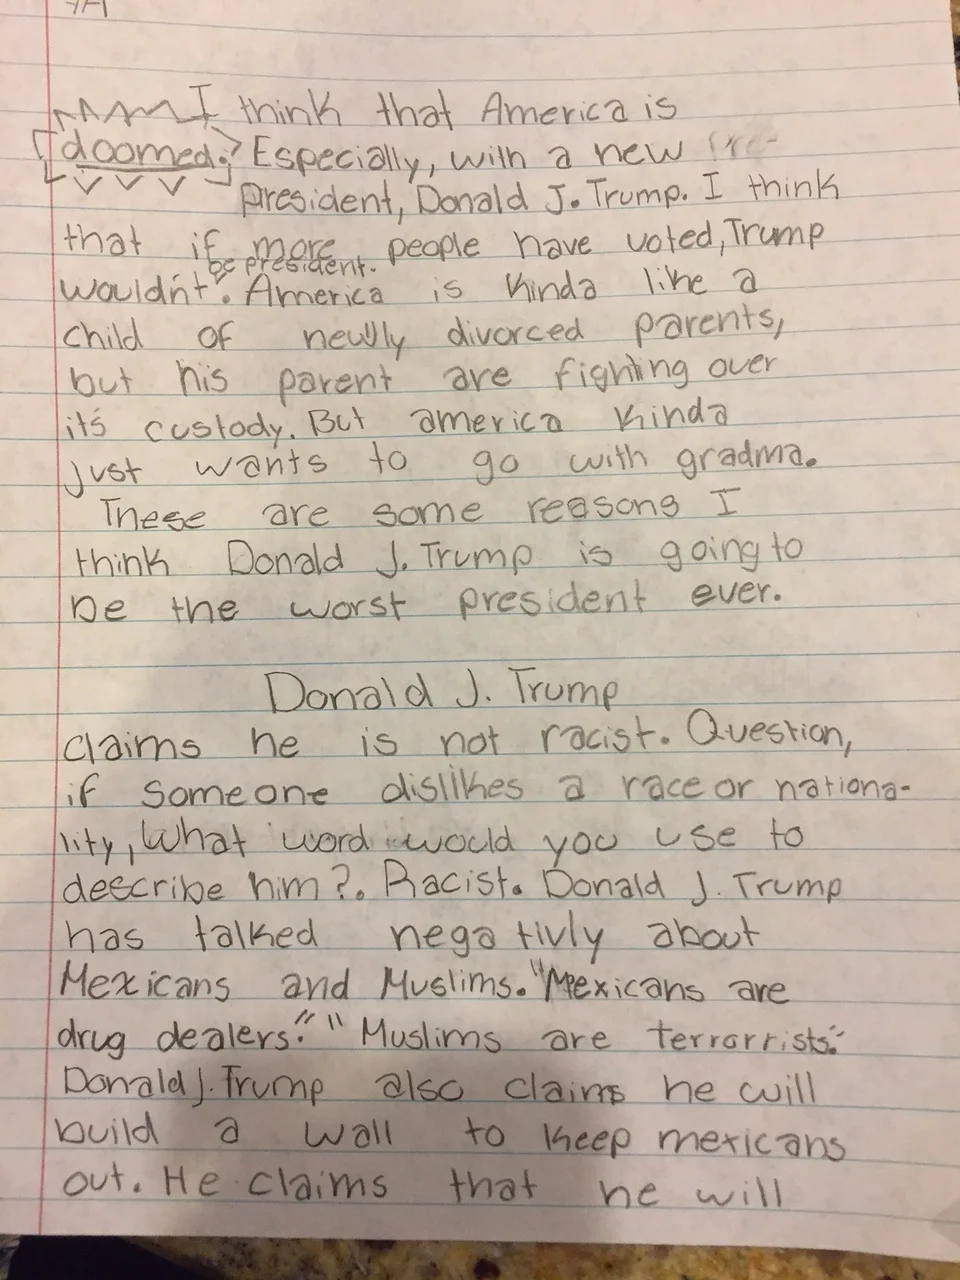 I think that America is
doomed. Especially, with a new
president, Donald J. Trump. I think
that if more people have voted, Trump
be president.
wouldn't. America is kinda like a
child of newlly divorced parents,
but his parent are fighting over
it's custody. But america kinda
just wants to go with gradma.
These are some reasons I
think Donald J. Trump is going to
be the worst president ever.
Donald J. Trump
claims he is not racist. Question,
if someone dislikes a race or nationa-
lity, What word would you use to
describe him?. Racist. Donald J. Trump
has talked negativly about
Mexicans and Muslims. "Mexicans are
drug dealers." "Muslims are terrorrists."
Donald J. Trump also claims he will
build a wall to keep mexicans
out. He claims that he will